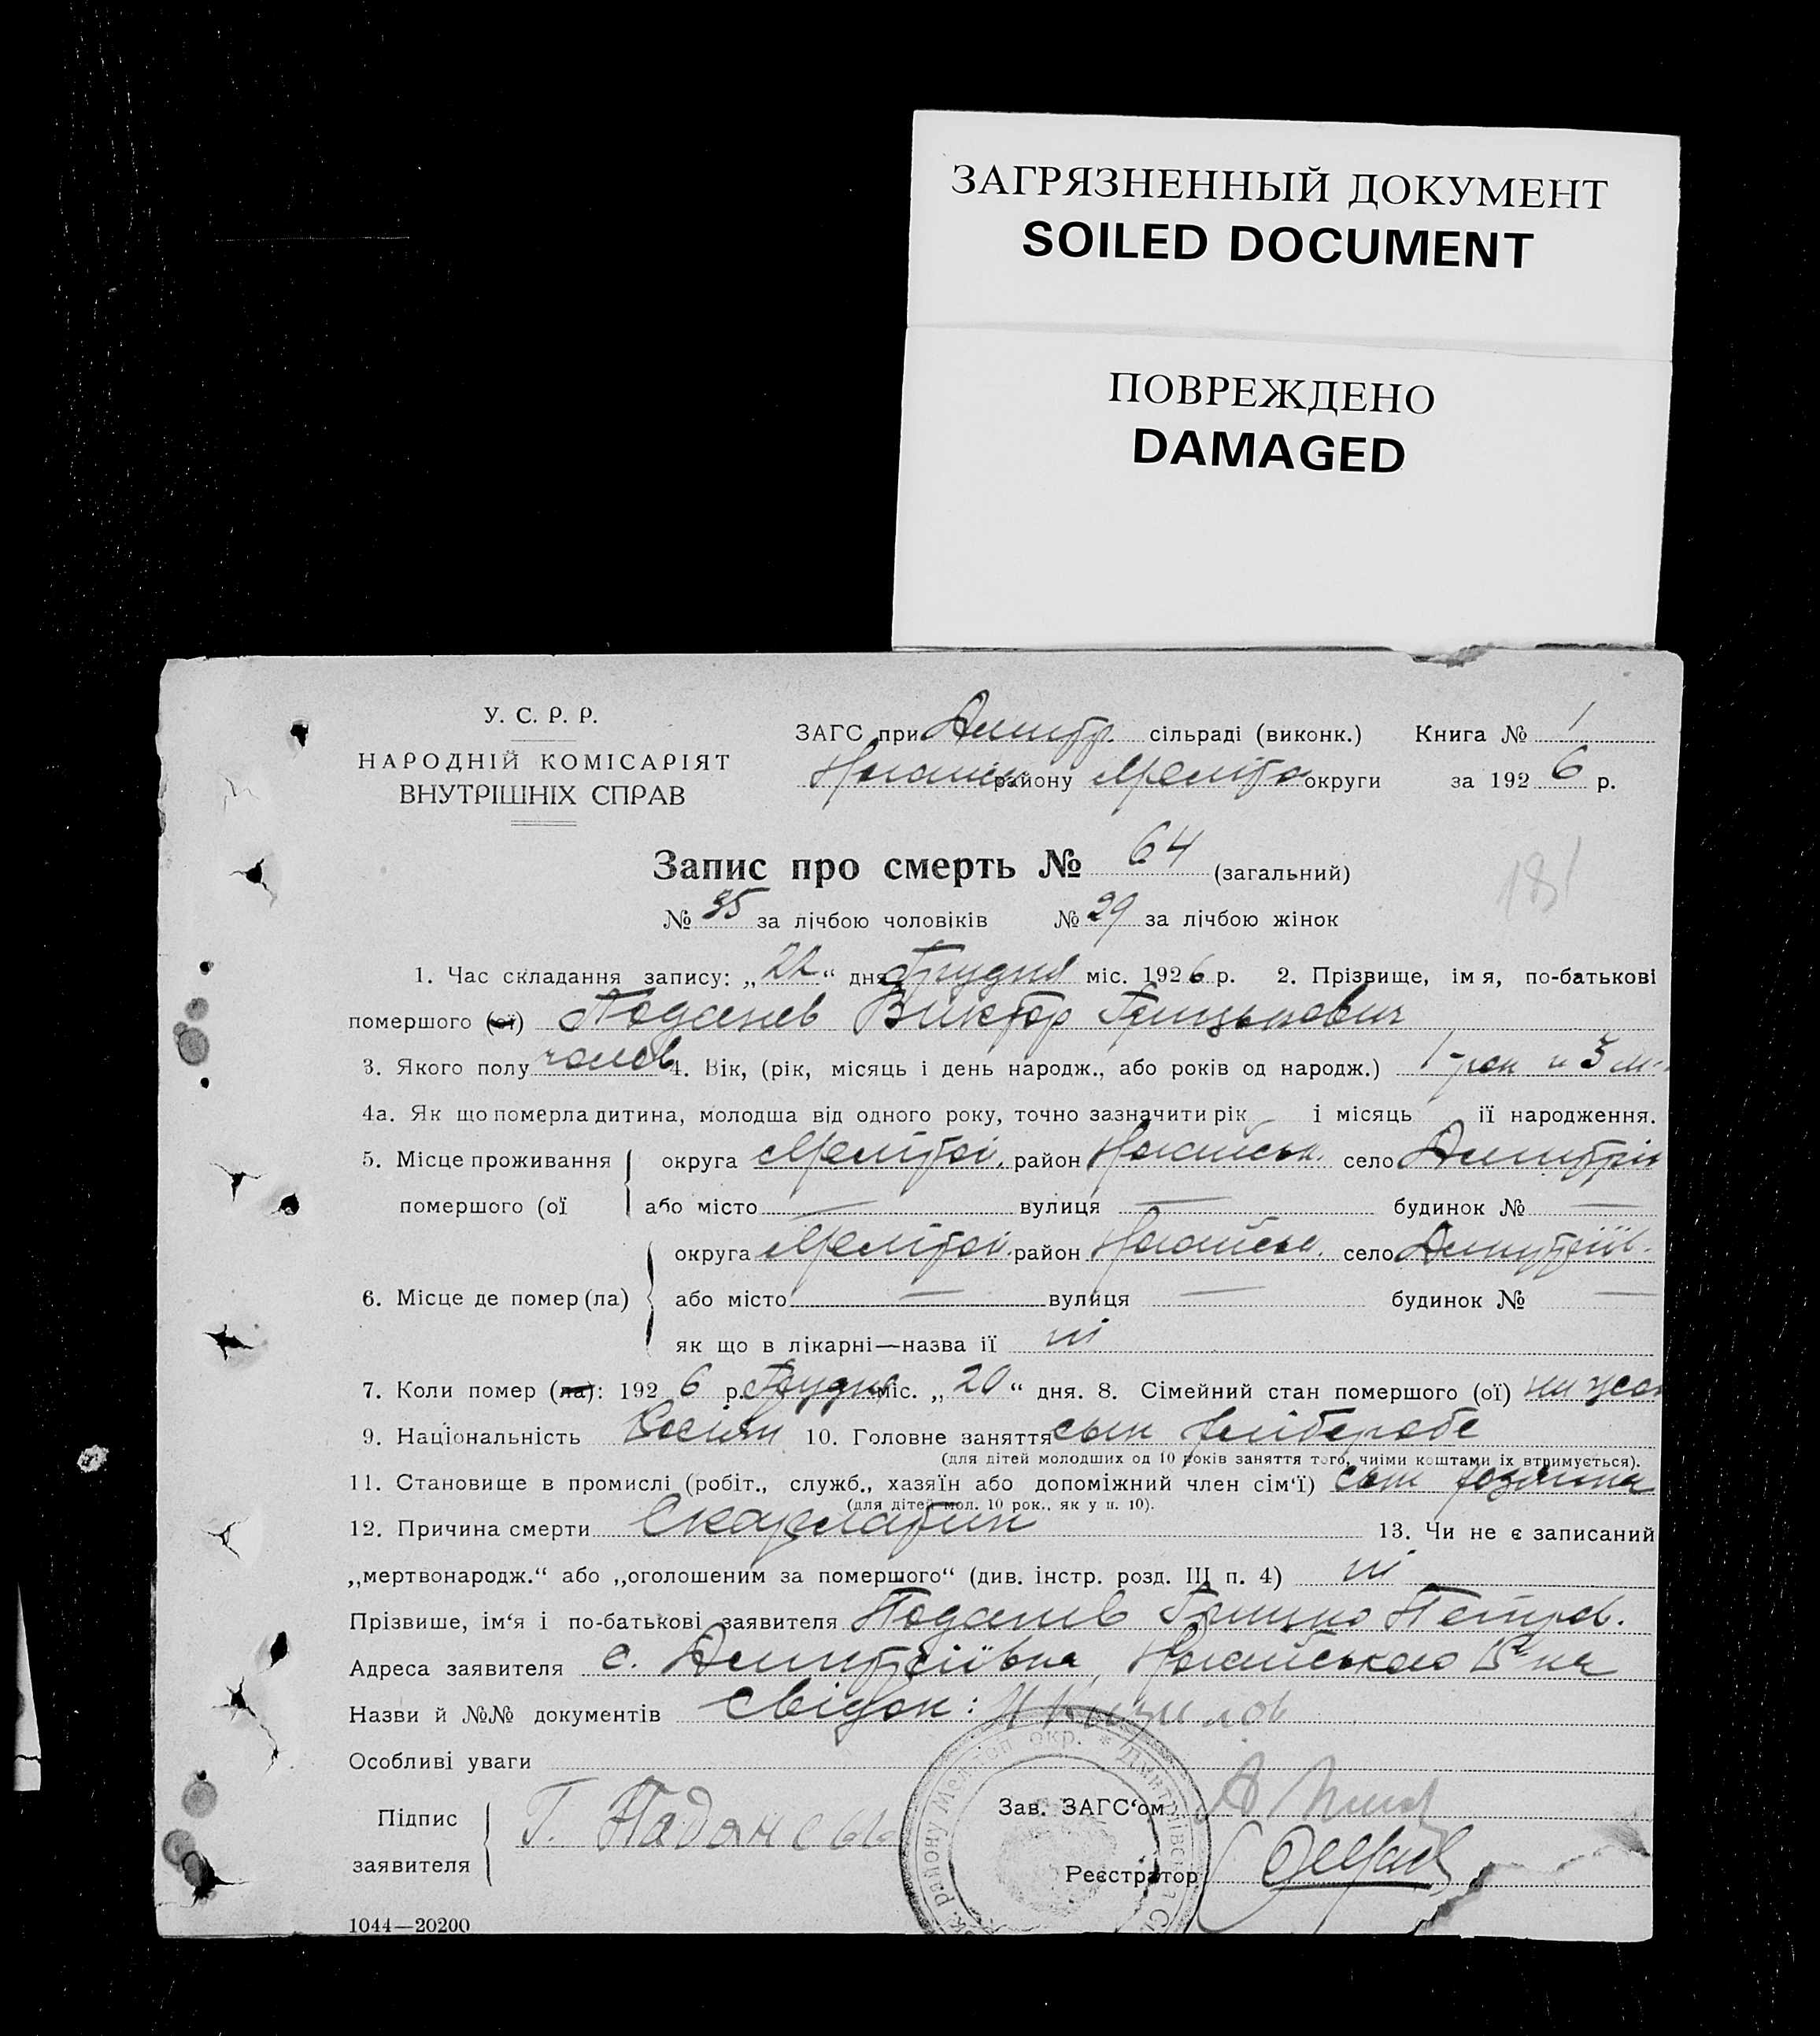 ЗАГРЯЗНЕННЫЙ ДОКУМЕНТ
SOILED DOCUMENT
ПОВРЕЖДЕНО
DAMAGED
У. С. Р. Р.
НАРОДНІЙ КОМІСАРІЯТ
ВНУТРІШНІХ СПРАВ
ЗАГС при Дмитр. сільраді (виконк.) Книга № 1
району округи за 1926 р.
Запис про смерть № 64 (загальний)
№ 35 за лічбою чоловіків № 29 за лічбою жінок
181
1. Час складання запису: „22“ дня Грудня міс. 1926 р. 2. Прізвище, імя, по-батькові
помершого (ої) Виктор Грицькович
3. Якого полу чолов 4. Вік, (рік, місяць і день народж., або років од народж.) 1 рок и 3 м.
4а. Як що померла дитина, молодша від одного року, точно зазначити рік і місяць її народження.
5. Місце проживання округа Мелітоп. район Ногайськ. село Дмитрів
помершого (ої або місто — вулиця — будинок № —
округа Мелітоп. район Ногайськ. село Дмитріїв.
6. Місце де помер (ла) або місто — вулиця — будинок № —
як що в лікарні—назва її ні
7. Коли помер (ла): 1926 р. Грудня міс. „20“ дня. 8. Сімейний стан помершого (ої)
9. Національність 10. Головне заняття сын хлібороба
(для дітей молодших од 10 років заняття того, чиїми коштами їх втримується).
11. Становище в промислі (робіт., служб., хазяїн або допоміжний член сім‘ї) сын хозяина
(для дітей мол. 10 рок., як у п. 10).
12. Причина смерти Скарлатин 13. Чи не є записаний
„мертвонародж.“ або „оголошеним за помершого“ (див. інстр. розд. III п. 4) ні
Прізвише, ім‘я і по-батькові заявителя Грицько Петров.
Адреса заявителя с. Дмитріївка, Ногайського
Назви й №№ документів свідок:
Особливі уваги
Підпис
заявителя Г.
Зав. ЗАГС‘ом
Реєстратор
району Мелітоп окр. * Дмитрівська
1044—20200